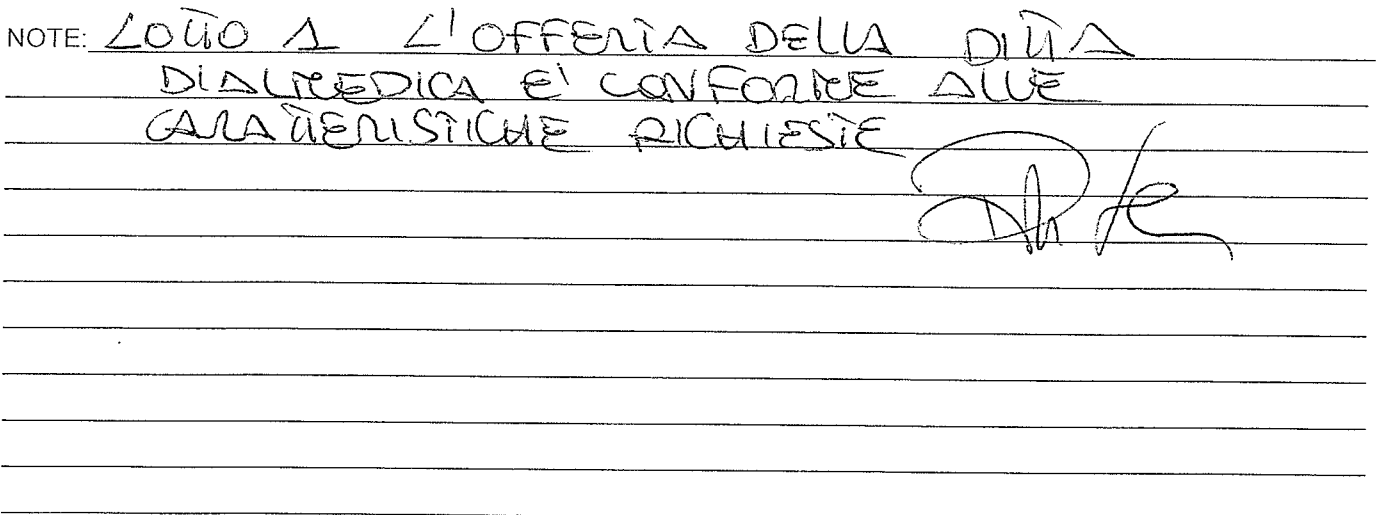 NOTE: LOTTO 1 L'OFFERTA DELLA DITTA
DIALMEDICA E' CONFORME ALLE
CARATTERISTICHE RICHIESTE